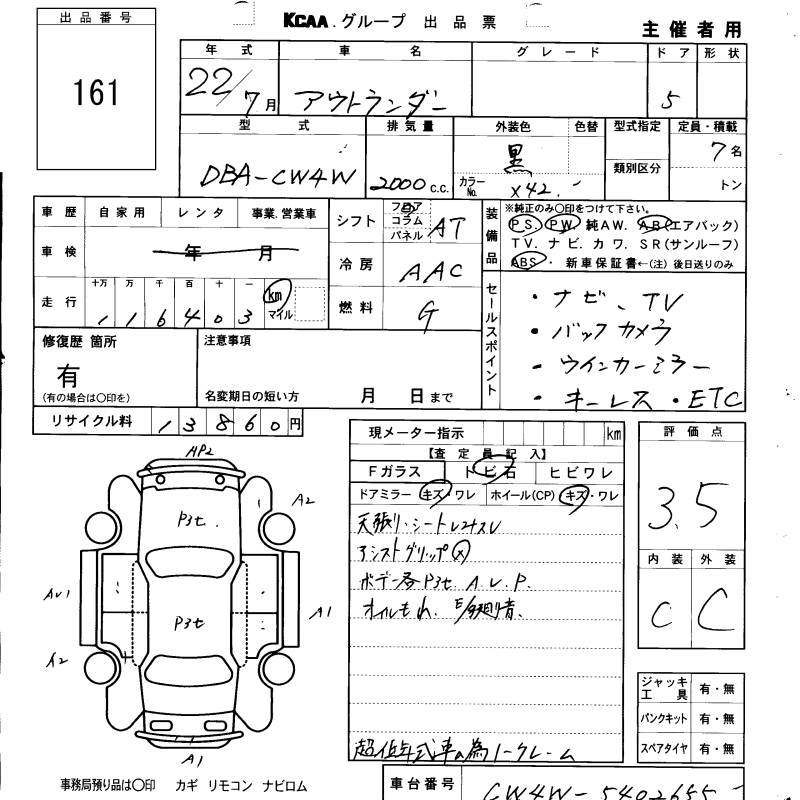 出品番号
161
KCAA.グループ 出品票
主催者用
年式 車名 グレード ドア 形状
22/7月 アウトランダー 5
型式 排気量 外装色 色替 型式指定 定員・積載
類別区分
DBA-CW4W 2000c.c. 黒 7名
カラーNo. X42 トン
車歴 自家用 レンタ 事業.営業車
車検 年 月
走行 十万 万 千 百 十 一
1 1 6 4 0 3 km マイル
シフト フロア コラム パネル AT
冷房 AAC
燃料 G
装備品
※純正のみ○印をつけて下さい。
P.S. P.W. 純AW. AB(エアバック)
TV. ナビ. カワ. SR(サンルーフ)
ABS・ 新車保証書←(注) 後日送りのみ
セールスポイント
・ナビ、TV
・バックカメラ
・ウインカーミラー
・キーレス・ETC
修復歴 箇所
有
(有の場合は○印を)
注意事項
名変期日の短い方 月 日まで
リサイクル料 13860円
現メーター指示 km
【査定員記入】
Fガラス トビ石 ヒビワレ
ドアミラー キズ・ワレ ホイール(CP) キズ・ワレ
天張り・シート
アシストグリップ
ボデー各P3セ. A.U.P.
オイルもれ.
超低年式車の為ノークレーム
評価点
3.5
内装 外装
C C
ジャッキ工具 有・無
パンクキット 有・無
スペアタイヤ 有・無
AP2
P3セ.
A2
AU1
P3セ
A1
A2
A1
事務局預り品は○印 カギ リモコン ナビロム
車台番号 CW4W-5402655